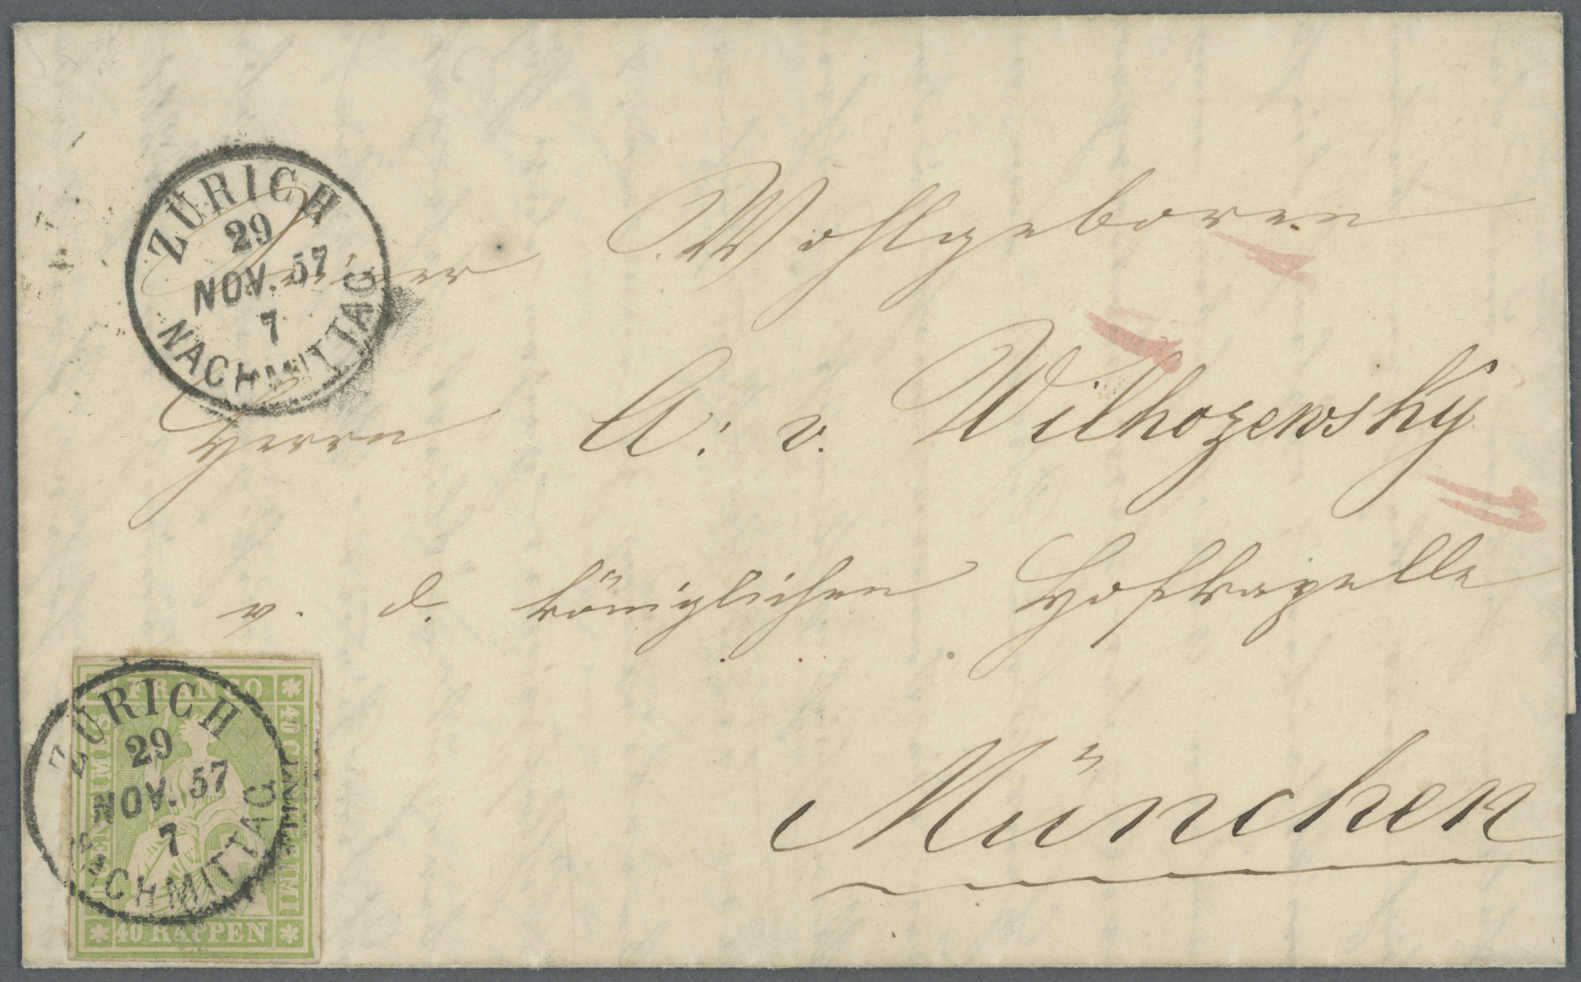 ZÜRICH
29
NOV. 57
7
NACHMITTAG
Seiner Wohlgeboren
Herrn A: v. Wilhozewsky
v. d. königlichen Hofkapelle
München
FRANCO
40 CENTIMES
40 CENTESIMI
40 RAPPEN
ZÜRICH
29
NOV. 57
7
NACHMITTAG